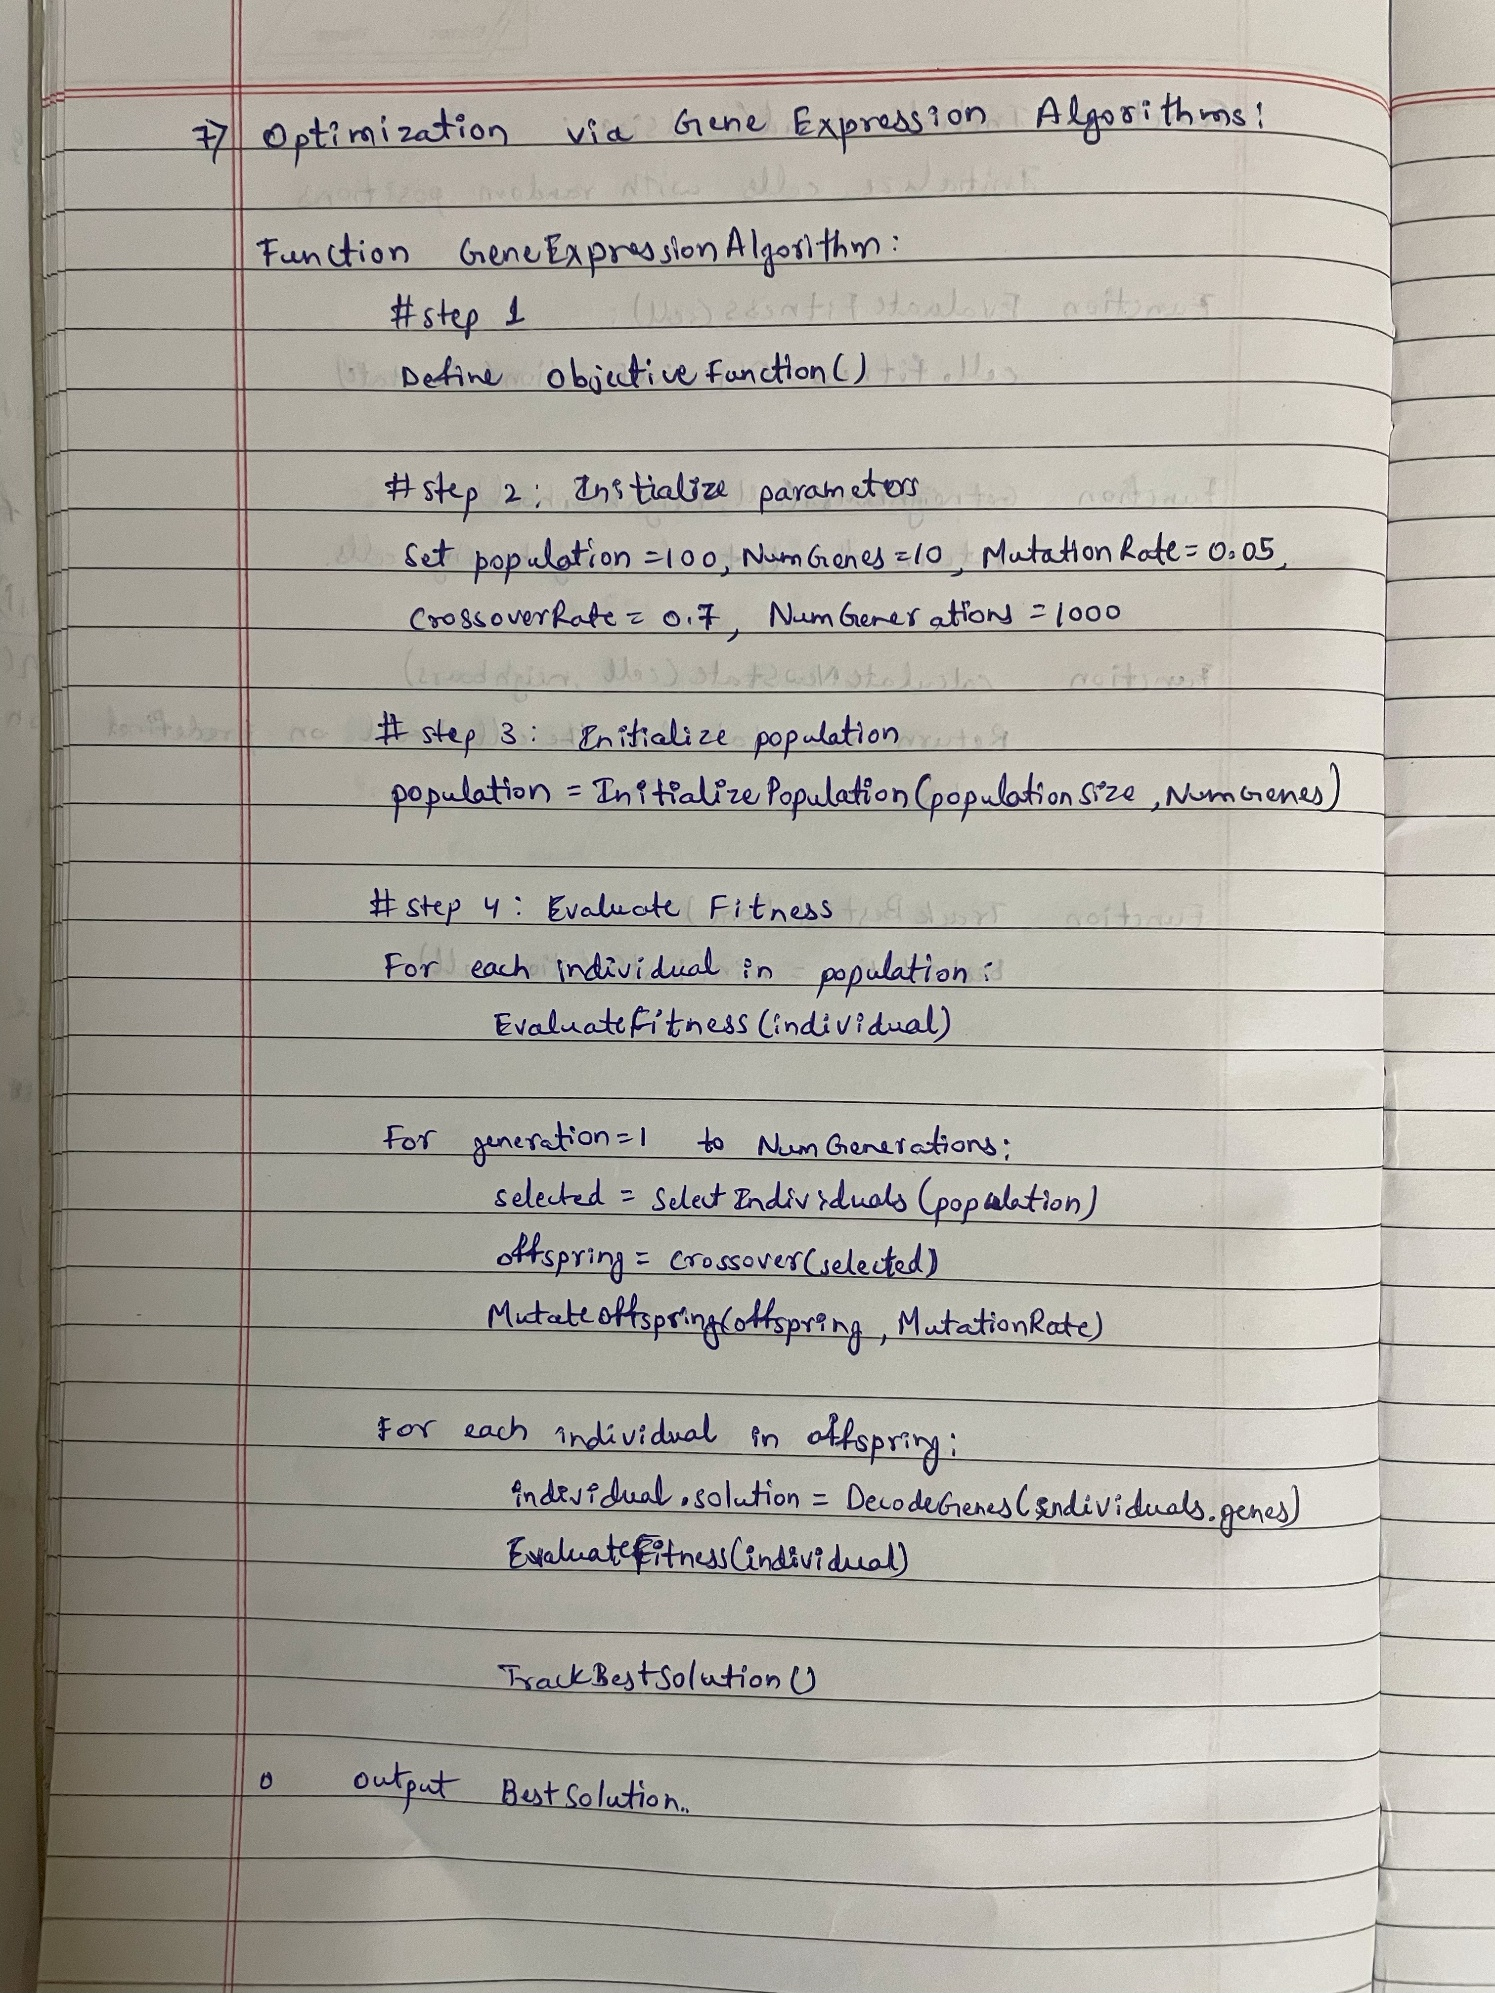 7) Optimization via Gene Expression Algorithms:
Function GeneExpressionAlgorithm:
#step 1
Define objective Function()
#step 2: Initialize parameters
Set population =100, NumGenes =10, Mutation Rate = 0.05,
CrossoverRate = 0.7, NumGenerations = 1000
# step 3: Initialize population
population = Initialize Population (population size, NumGenes)
# step 4: Evaluate Fitness
For each individual in population:
EvaluateFitness (individual)
For generation=1 to NumGenerations:
selected = Select Individuals (population)
offspring = crossover(selected)
Mutate offspring(offspring, MutationRate)
For each individual in offspring:
individual.solution = DecodeGenes (individuals.genes)
EvaluateFitness(individual)
TrackBestSolution()
o output Best Solution..